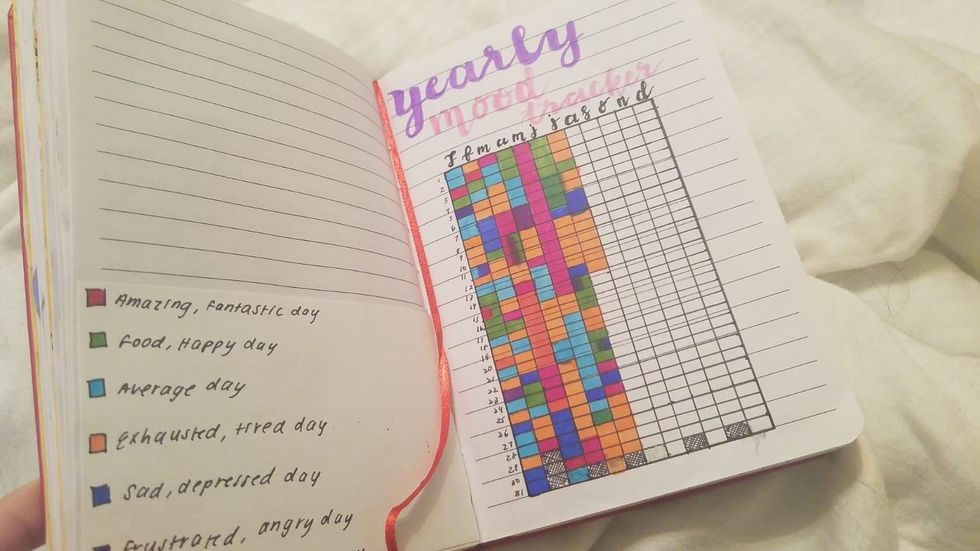 Amazing, Fantastic day
Good, Happy day
Average day
Exhausted, tired day
Sad, depressed day
Frustrated, angry day
yearly
mood
tracker
J f m a m j j a s o n d
1
2
3
4
5
6
7
8
9
10
11
12
13
14
15
16
17
18
19
20
21
22
23
24
25
26
27
28
29
30
31